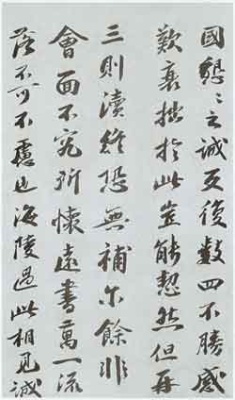 國懇〻之誠反復數四不勝感
歎衰拙於此豈能恝然但再
三則瀆終恐無補尓餘非
會面不究所懷遠書萬一流
落不可不慮也海陵過此相見誠